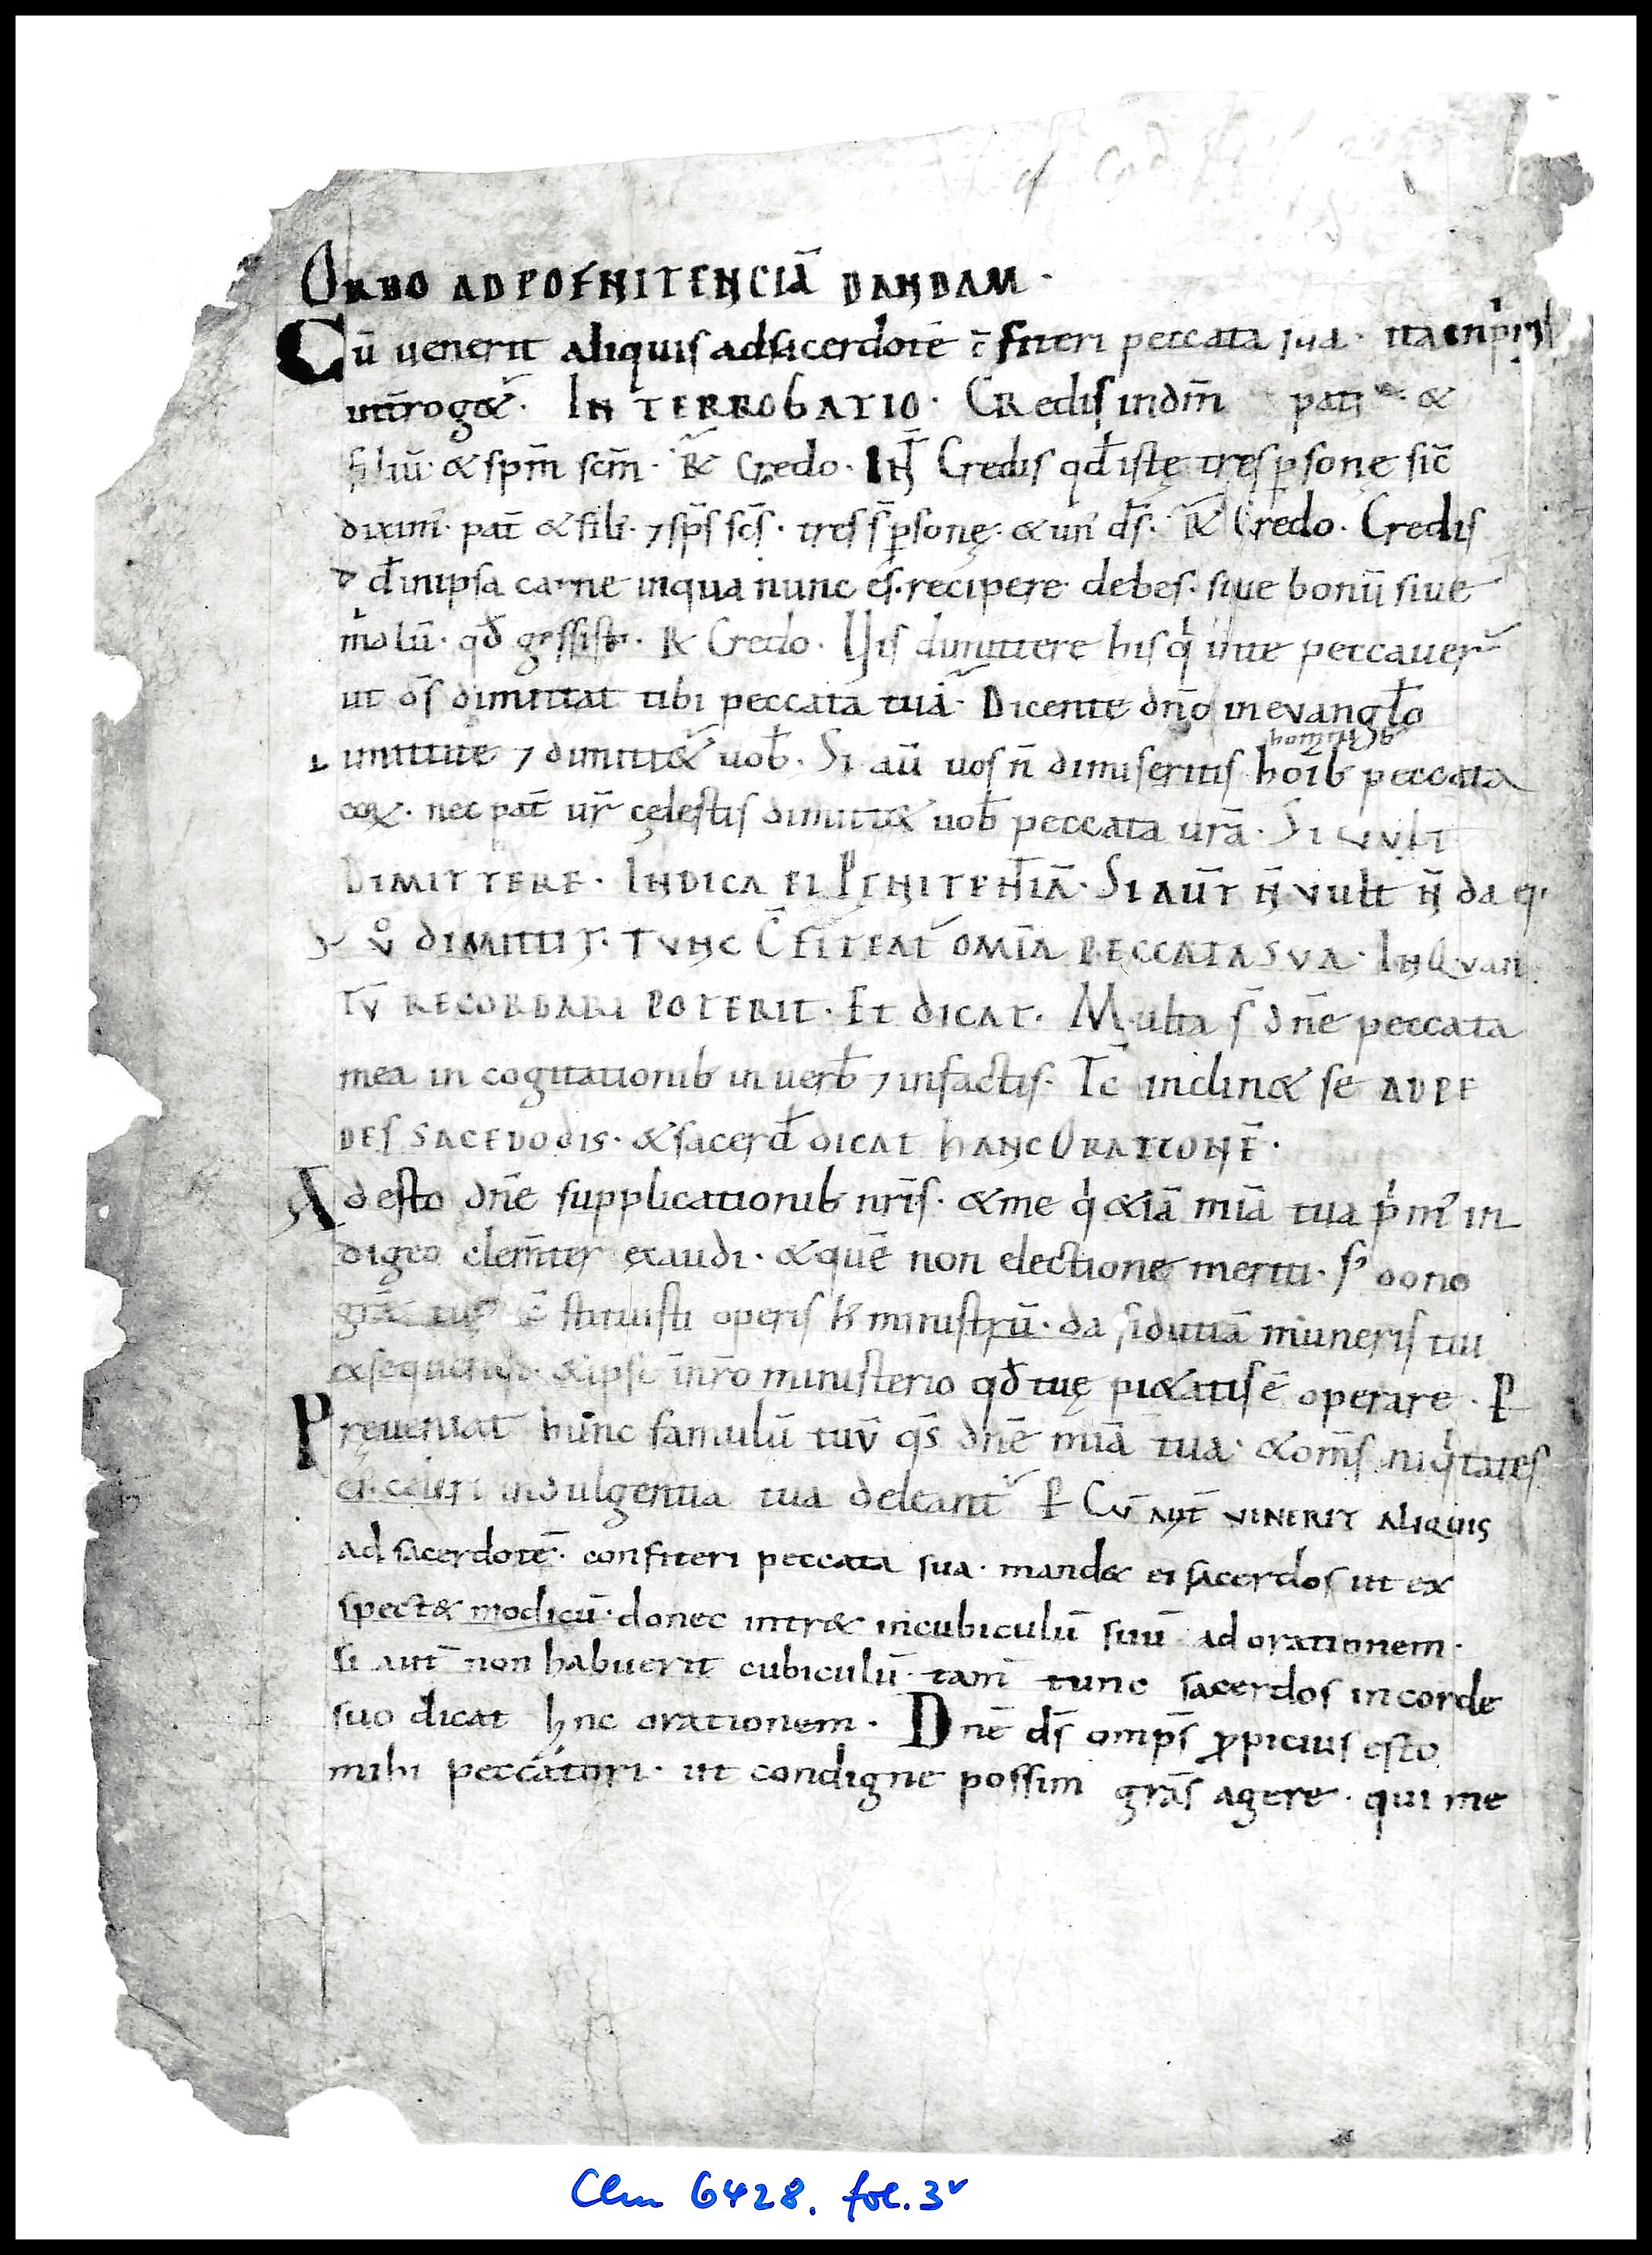 ORDO AD POENITENCIĀ DANDAM ·
Cū uenerit aliquis adsacerdotē c̄fiteri peccata sua · ita inpͥmis
int̄rogæ͂ · INTERROGATIO · CRedis indm̄ patr̄ · &
filiū · & spm̄ scm̄ · R̃ Credo · IN̄T Credis qđ istę tres ꝑsonę sic̄
dixim᾽ · pat̄ & fili᾽ · ⁊ sp̄s sc̄s · tres s̄ ꝑsonę · & un᾽ ds̄ · R̃ Credo · Credis
qđ inipsa carne inqua nunc es̄ · recipere debes · siue bonū siue
malū · qđ gessisti · R̃ Credo · Uis dimittere his qͥ inte peccauer̄
ut ds̄ dimittat tibi peccata tua · Dicente dn̄o in evangło
Dimittite ⁊ dimittet͂ uob̄ · Si aū uos n̄ dimiseritis hoīb peccata
hominib
eoꝝ · nec pat̄ ur̄ cęlestis dimittet uob̄ peccata urā · Si vult
DIMITTERE · INDICA EI PENITEN̄TIĀ · SI AŪT N̄ vult n̄ da ei
si v̊ DIMITTIT · TVNC C̄FITEAT᾽ OMĪA PECCATA SVA · INQvan
TV̄ RECORDARI POTERIT · ET DICAT · Multa s̄ dn̄e peccata
mea in cogitationib in uerb̄ ⁊ infactis · Tc̄ inclinet se AD PE
DES SACEDODIS · & sacerđ DICAT hANC ORATIONĒ ·
Adesto dn̄e supplicationib nrīs · & me qͥ &iā miā tua pͥm᾽ in
digeo clem̄ter exaudi · & quē non electione meriti · s; dono
grā̄ tuę c̄stituisti operis h᾽ ministrū · da fiduciā muneris tui
exsequendi · & ipse in nr̄o ministerio qđ tuę pietatis ē operare · P̱
Pręueniat hunc famulū tuū qs̄ dn̄e miā tua · & om̄s iniqͥtates
ei᾽ celeri indulgentia tua deleant᾽ P̱ CV̄ AUT̄ VENERIT ALIQUIS
ad sacerdotē · confiteri peccata sua · mandet ei sacerdos ut ex
spectet modicū · donec intret incubiculū suū ad orationem ·
si aut̄ non habuerit cubiculū · tam̄ tunc sacerdos in corde
suo dicat hnc orationem · Dn̄e ds̄ omps̄ ꝓpicius esto
mihi peccátori · ut condigne possim grās agere · qui me
Clm 6428. fol. 3ᵛ